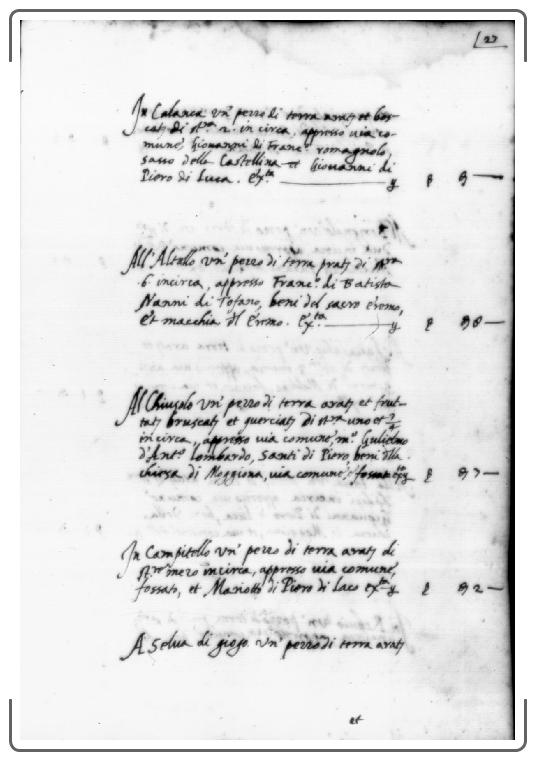 27
In Calanca un' pezzo di terra arat; et bos-
cat; di st.ra 2. in circa, appresso via co-
mune, Giovanni di Franc.o romagnolo,
sasso della Castellina et Giovanni di
Piero di Luca. ex.ta
All'Altallo un' pezzo di terra prat; di st.ra
6. incirca, appresso Franc.o di Batista
Nanni di Tofano, beni del sacro eremo,
et macchia d'Eremo. ex.ta 8
Al Chiusolo un' pezzo di terra arat; et frut-
tat; bruscat; et querciat; di st.ra uno et
incirca, appresso via comune, m.o Gulielmo
d'Ant.o lombardo, Santi di Piero, beni d'lla
chiesa di Moggiona, via comune, fossat 7
In Campitello un' pezzo di terra arat; di
st.ro mezo incirca, appresso via comune,
fossato, et Mariotto di Piero di Laco ex.ta 2
A Selva di giogo. un' pezzo di terra arat;
et